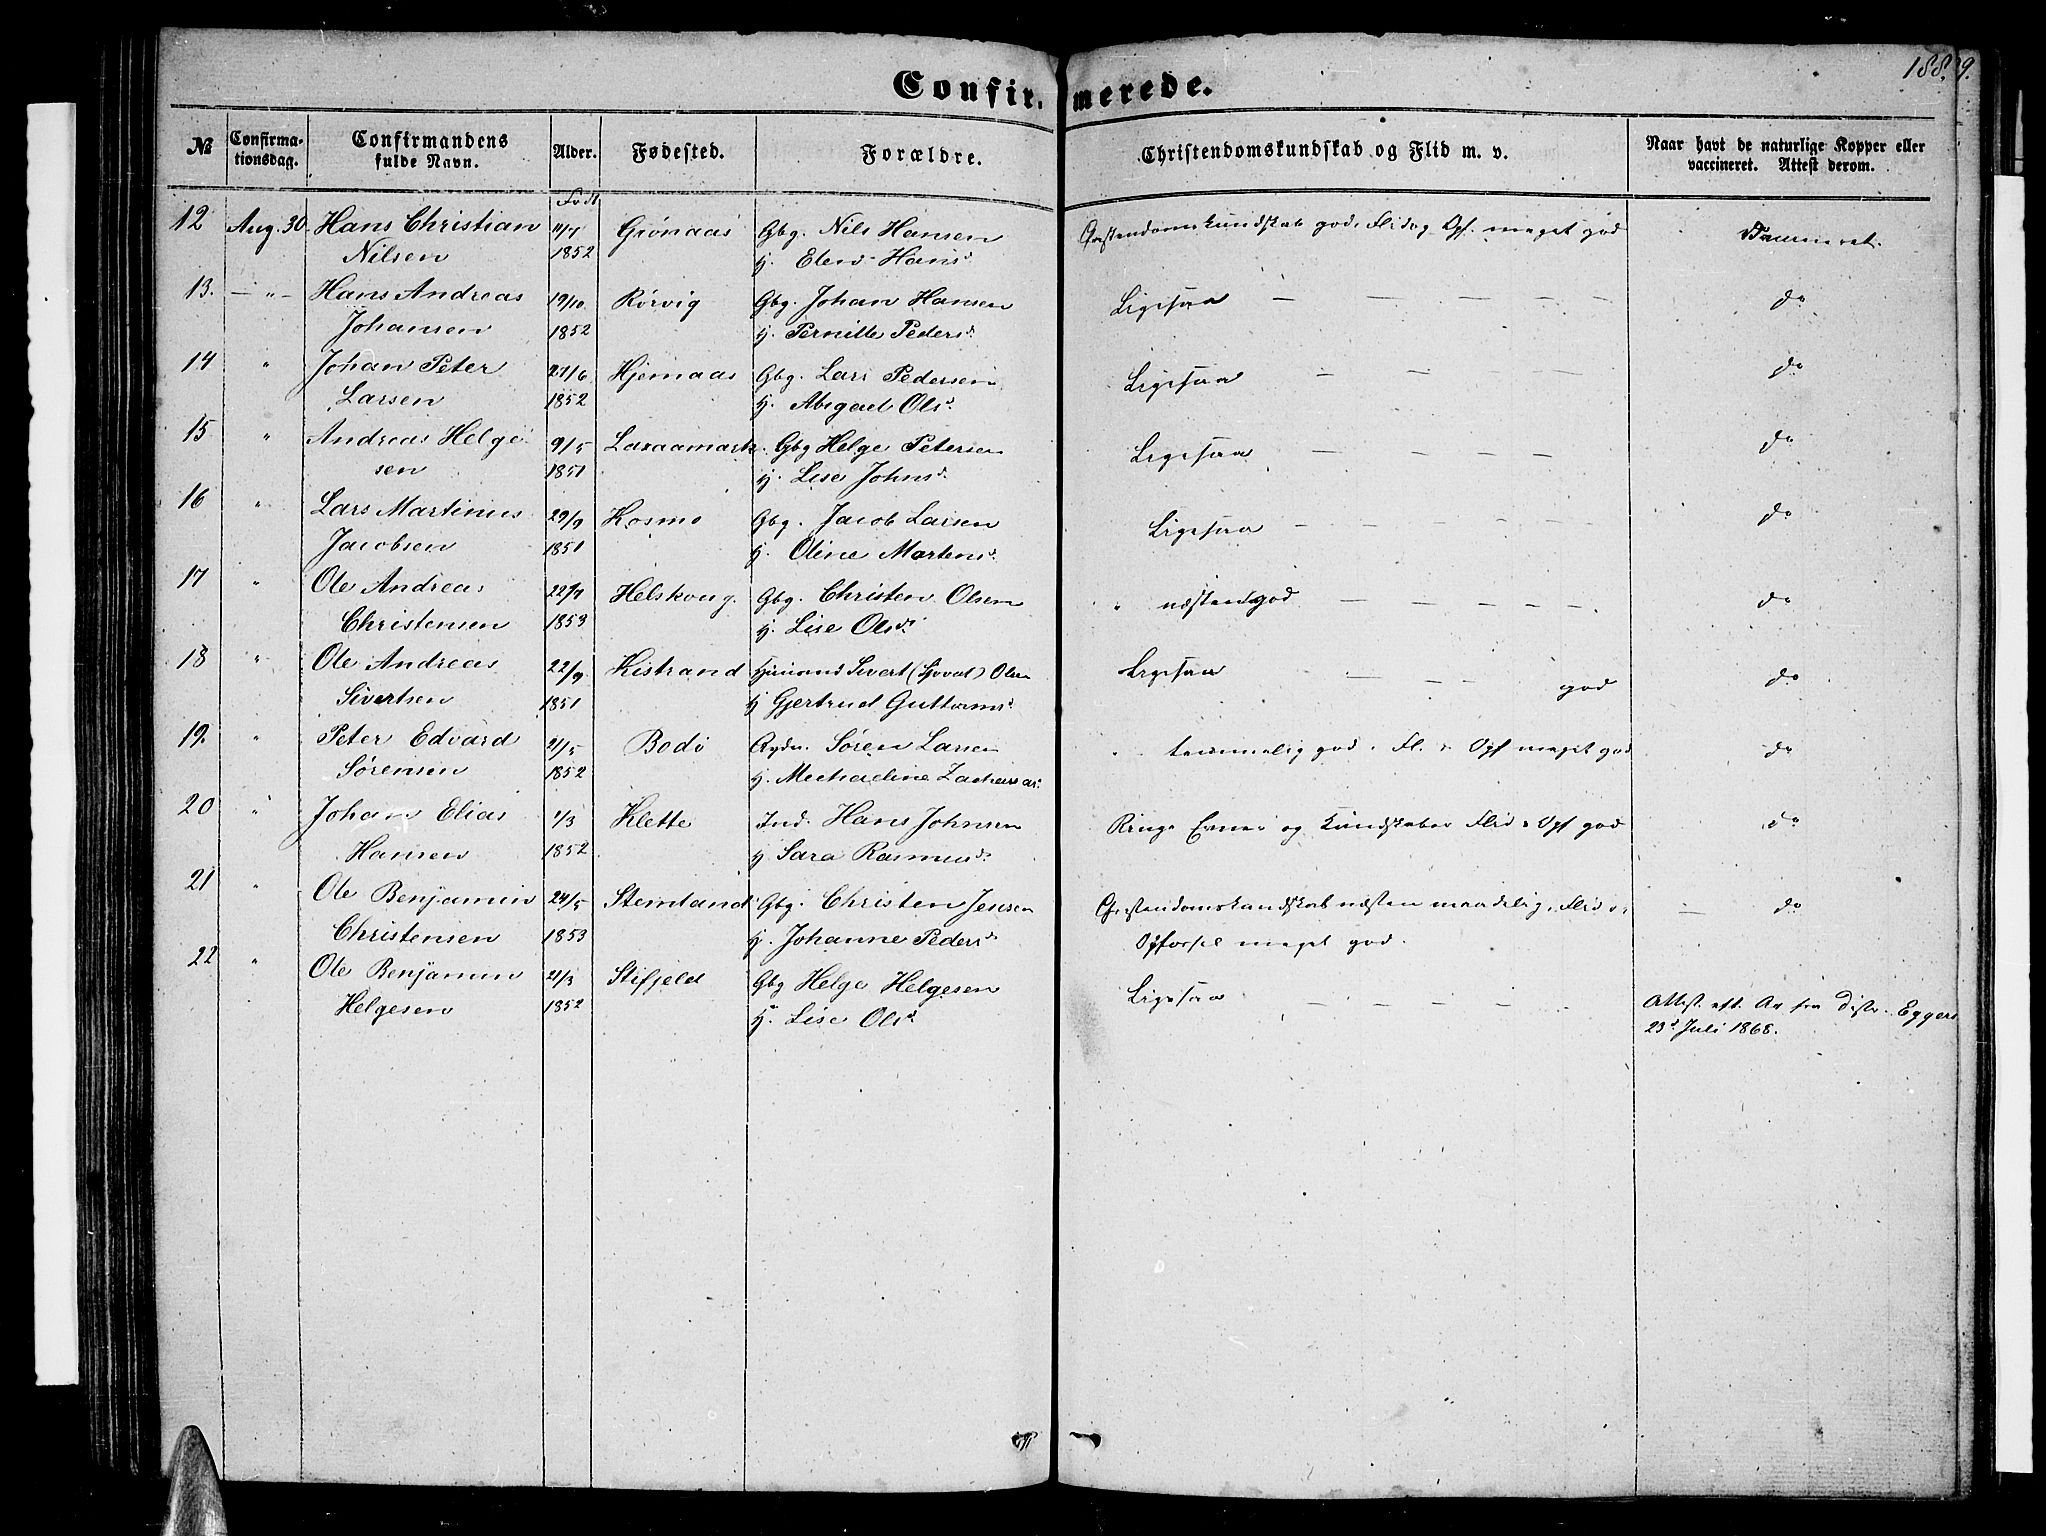 188. 9.
Confir- merede.
№ Confirma-tionsdag. Confirmandens fulde Navn. Alder. Fødested. Forældre. Christendomskundskab og Flid m. v. Naar havt de naturlige Kopper eller vaccineret. Attest derom.
Født
12 Aug. 30 Hans Christian 11/7 Grönaas Gbg. Nils Hansen Christendomskundskab god, Flid og Opf. meget god Vaccineret.
Nilsen 1852 H. Elen Hansd.
13. — " — Hans Andreas 19/10 Rörvig Gbg. Johan Hansen Ligesaa — — — — — do
Johansen 1852 H. Pernille Pedersd.
14 " Johan Peter 27/6 Hjemaas Gbg. Lars Pedersen Ligesaa — — — — do
Larsen 1852 H. Abigael Olsd.
15 " Andreas Helge- 9/5 Laxaamark. Gbg Helge Petersen Ligesaa — — — — — do
sen 1851 H. Lise Johnsd.
16 " Lars Martinus 29/9 Kosmo Gbg. Jacob Larsen Ligesaa — — — — — do
Jacobsen 1851 H. Oline Martensd.
17 " Ole Andreas 22/7 Helskoug. Gbg. Christen Olsen " næsten god — — — — — do
Christensen 1853 H. Lise Olsd.
18 " Ole Andreas 22/9 Kistrand Sivert (Syvat) Olsen Ligesaa — — — god do
Sivertsen 1851 H Gjertrud Guttormsd.
19. " Peter Edvard 21/5 Bodö Søren Larsen " temmelig god. Fl. & Opf meget god do
Sørensen 1852 H. Michaeline Zachariasd.
20 " Johan Elias 4/3 Klette Ind. Hans Johnsen Ringe Evner og Kundskaber Flid & Opf god do
Hansen 1852 H Sara Rasmusd.
21 " Ole Benjamin 24/5 Stemland Gbg. Christen Jensen Christendomskundskab næsten maadelig, Flid & — do
Christensen 1853 H. Johanne Pedersd. Opførsel meget god.
22 " Ole Benjamin 21/3 Stifjeld Gbg Helge Helgesen Ligesaa — — — — — Attest fra Eggers
Helgesen 1852 H. Lise Olsd. 23d Juli 1868.